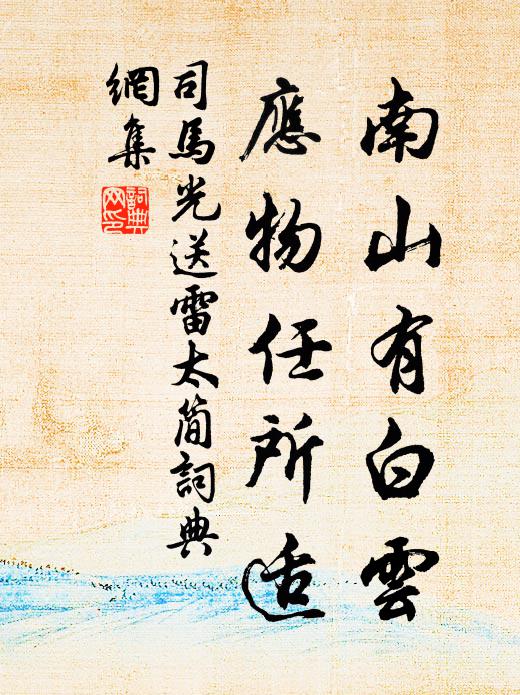 南山有白雲
應物任所适
司馬光送雷太简詞典
網集
詞典
网印